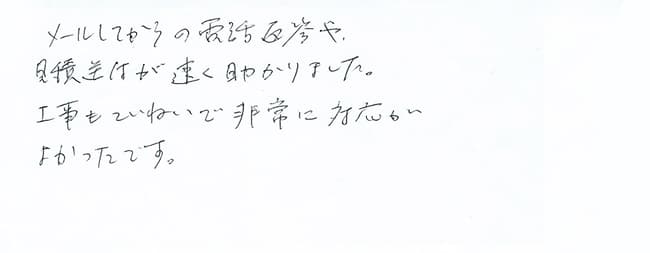 メールしてからの電話応答や、
見積差はが速く助かりました。
工事もていねいで非常に対応が
よかったです。